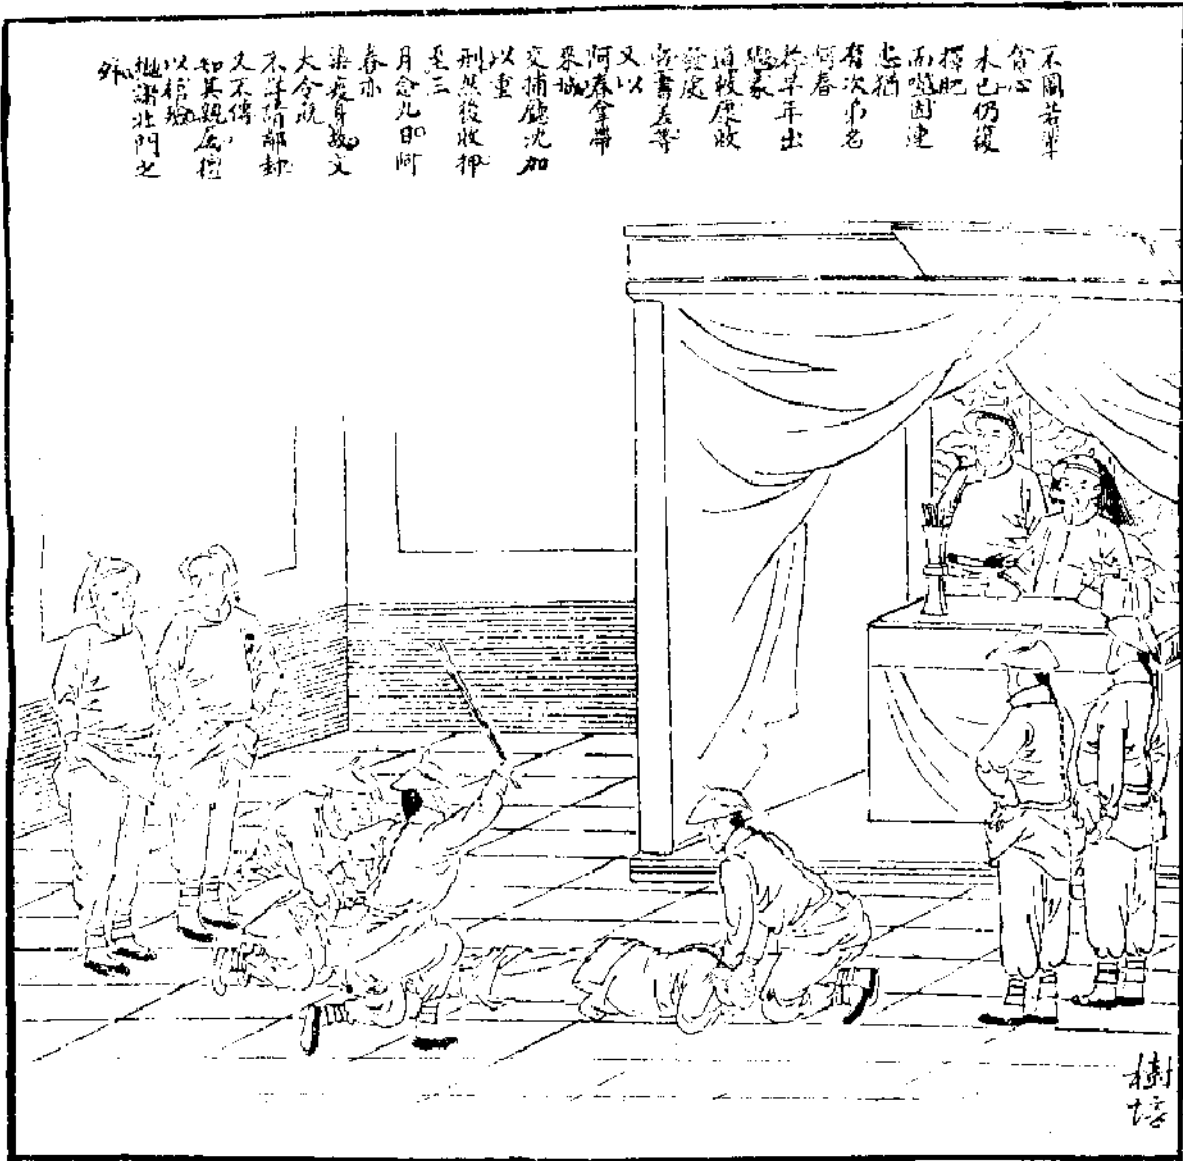 不圖若輩
貪心
未已仍復
擇肥
而噬因連
忠猶
有次弟名
阿春
於早年出
繼蒙
道被原收
發處
書差等
又以
阿春拿帶
來城
交捕廳沈加
以重
刑然後收押
至三
月念九日阿
春亦
染疫身故文
大令既
不詳請鄰封
又不傳
知其親屬擅
以棺殮
拋諸北門之
外
樹培